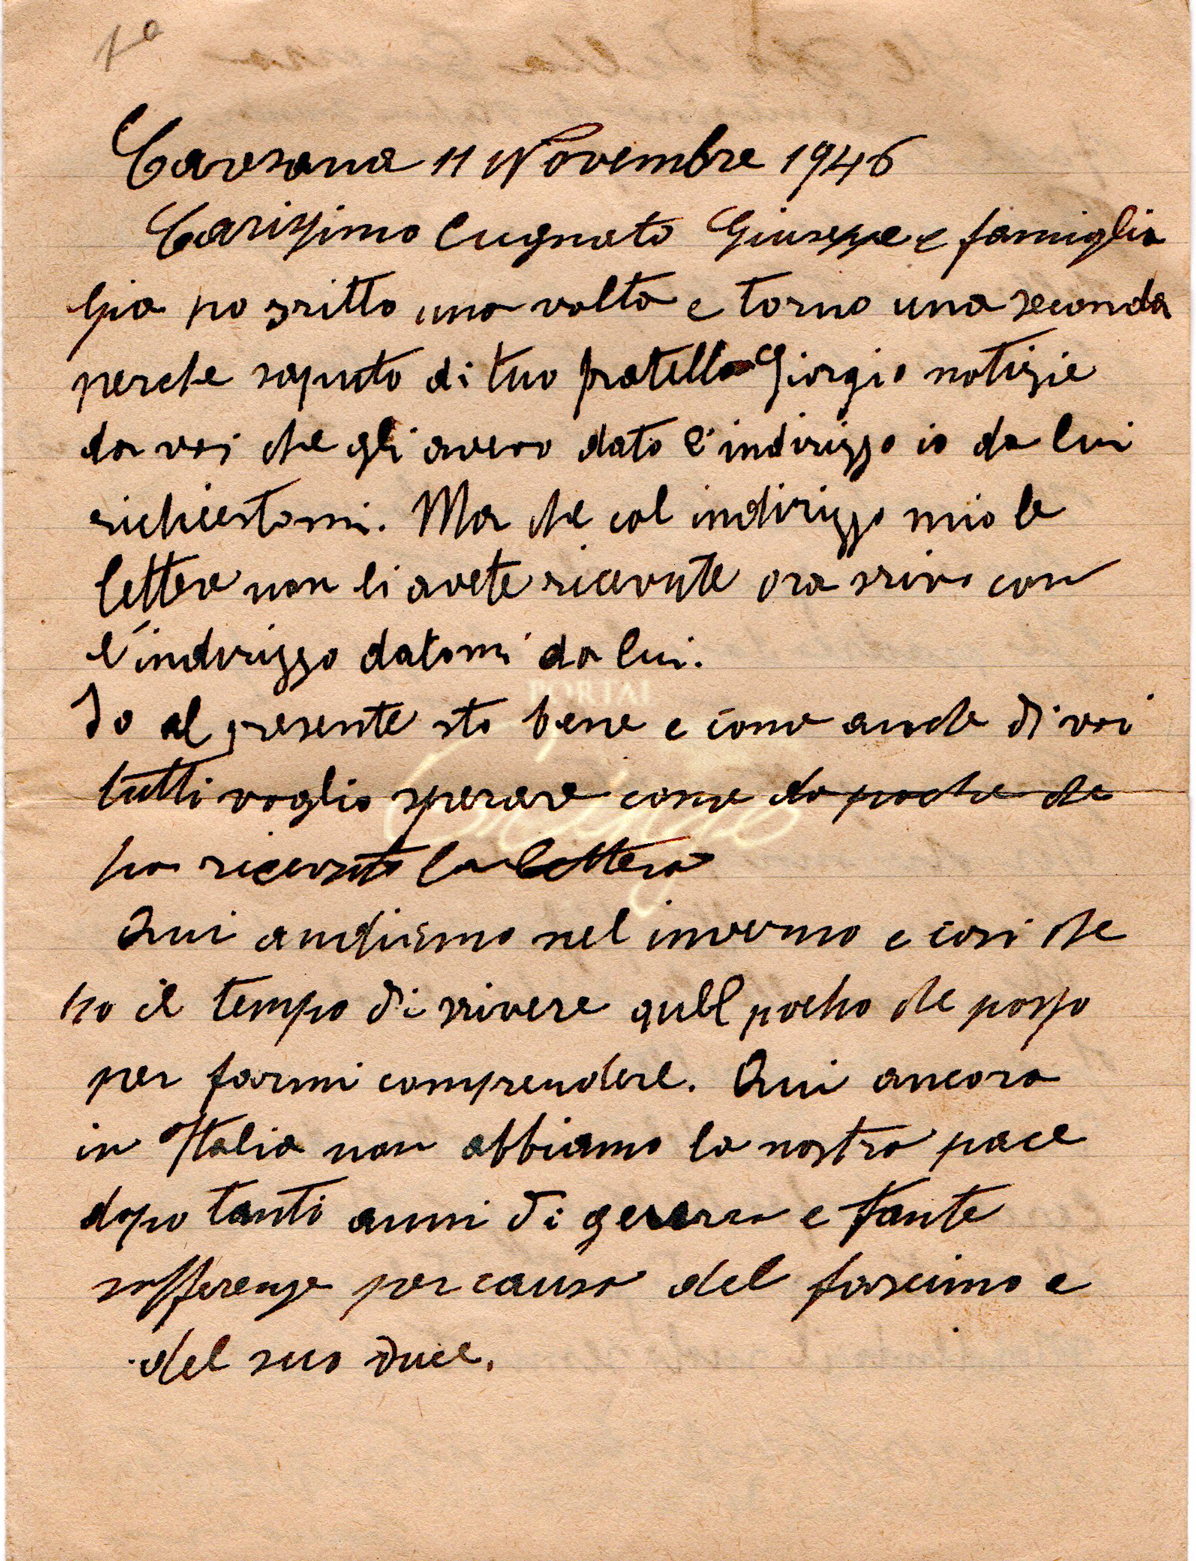 1ª
Carsana 11 Novembre 1946
Carissimo Cugnato Giuseppe e famiglia
Gia ho sritto una volta e torno una seconda
perche saputo di tuo fratello Giorgio notizie
da voi che gli avevo dato l'indirizzo io da lui
richiestomi. Ma che col indirizzo mio le
lettere non li avete ricevute ora srivo con
l'indirizzo datomi da lui.
Io al presente sto bene e come anche di voi
tutti voglio sperare come da poche che
ho ricevuto la lettera
Qui andiamo nel inverno e cosi che
ho il tempo di srivere quel pocho che posso
per farmi comprendere. Qui ancora
in Italia non abbiamo la nostra pace
dopo tanti anni di gererra e tante
sofferenze per causa del fascimo e
del suo duce.
PORTAL